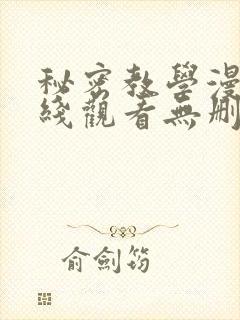 秘密教學漫
綫觀看無刪
俞劍筠